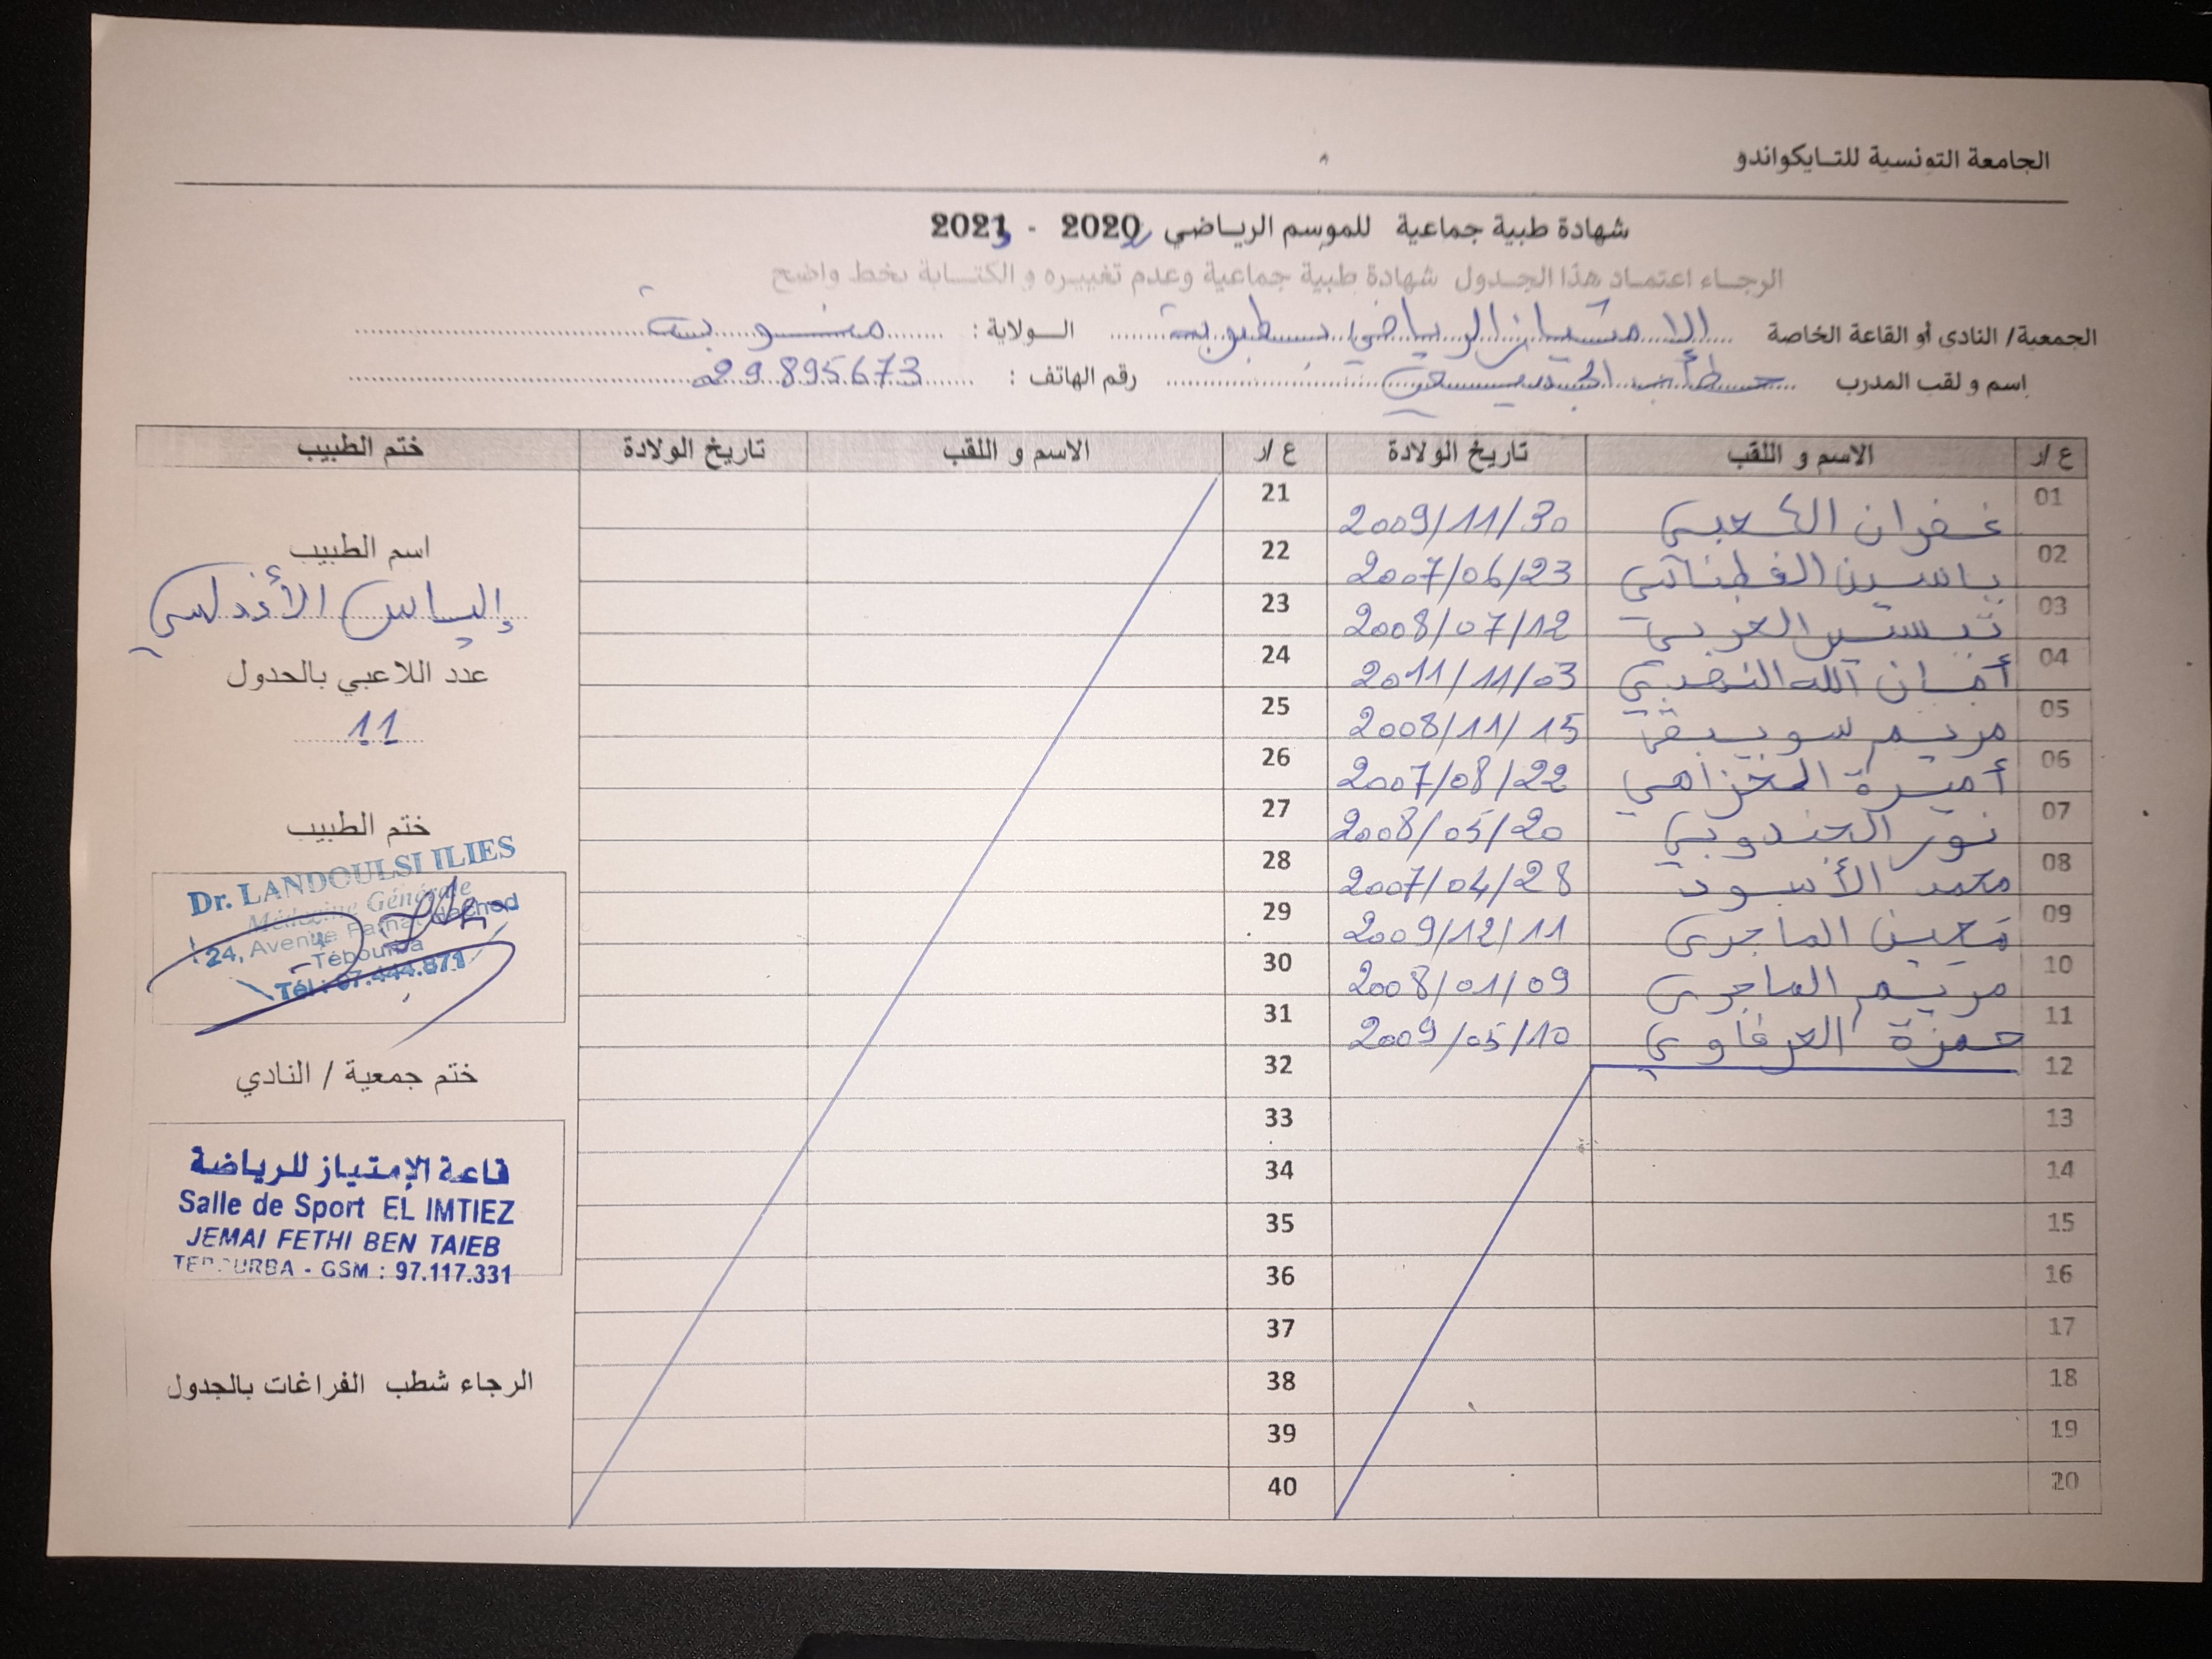 الجامعة التونسية للتايكواندو
شهادة طبية جماعية للموسم الرياضي 2020 - 2021
الرجاء اعتماد هذا الجدول شهادة طبية جماعية وعدم تغييره و الكتابة بخط واضح
الجمعية/ النادي أو القاعة الخاصة الامتياز الرياضي بطبوربة الولاية : منوبة
إسم و لقب المدرب رقم الهاتف : 29895673
ع /ر الاسم و اللقب تاريخ الولادة ع /ر الاسم و اللقب تاريخ الولادة ختم الطبيب
01 غفران الكعبي 2009/11/30 21
02 ياسين 2007/06/23 22
03 العربي 2008/07/12 23
04 أمان الله 2011/11/03 24
05 مريم 2008/11/15 25
06 أميرة 2007/08/22 26
07 نور الجندوبي 2008/05/20 27
08 محمد الأسود 2007/04/28 28
09 الماجري 2009/12/11 29
10 مريم الماجري 2008/01/09 30
11 حمزة العرفاوي 2009/05/10 31
12 32
13 33
14 34
15 35
16 36
17 37
18 38
19 39
20 40
اسم الطبيب
إلياس الأندلسي
عدد اللاعبي بالجدول
11
ختم الطبيب
Dr. LANDOULSI ILIES
Médecine Générale
24, Avenue Farhat Hached
Tébourba
Tél : 97.444.871
ختم جمعية / النادي
قاعة الإمتياز للرياضة
Salle de Sport EL IMTIEZ
JEMAI FETHI BEN TAIEB
TEBOURBA - GSM : 97.117.331
الرجاء شطب الفراغات بالجدول